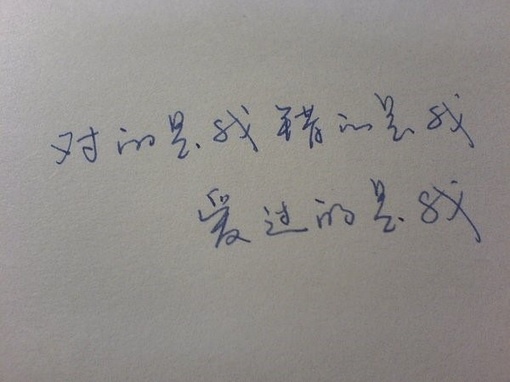 对的是我错的是我
爱过的是我